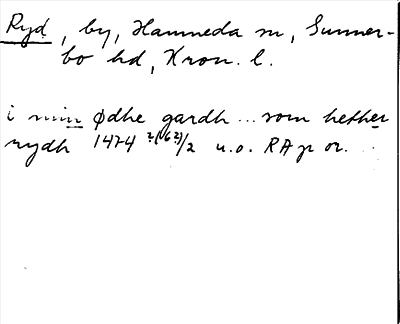 Ryd, by, Hamneda sn, Sunner-
bo hd, Kron. l.
i min ødhe gardh ... som hether
rydh 1474 ?(16?)/2 u.o. RAp or.